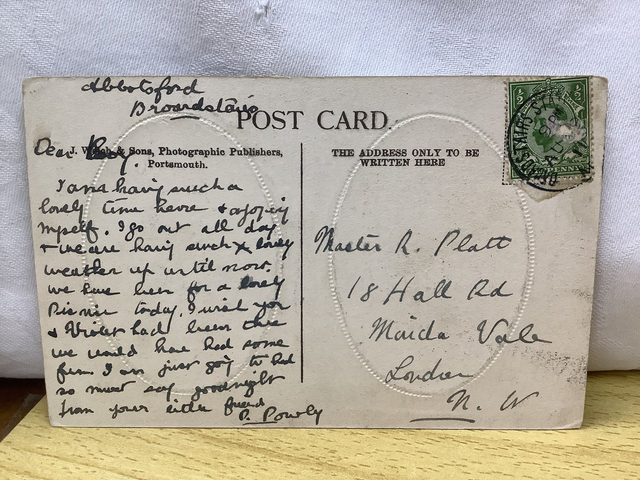 Abbotsford
Broardstairs
POST CARD
Dear
& Sons, Photographic Publishers,
Portsmouth.
THE ADDRESS ONLY TO BE
WRITTEN HERE
I am having such a
lovely time here &
myself. I go out all day
& we are having such lovely
weather up until now.
we have been for a lovely
today. I wish you
& Violet had been here
we would have had some
fun I am just going to bed
so must say goodnight
from your little friend
Master R. Platt
18 Hall Rd
Maida Vale
London
N. W